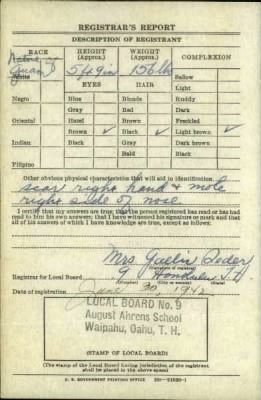 REGISTRAR'S REPORT
DESCRIPTION OF REGISTRANT
RACE HEIGHT (Approx.) WEIGHT (Approx.) COMPLEXION
Native of Guam 5 ft 9 in 156 lb
White Sallow
EYES HAIR Light
Negro Blue Blonde Ruddy
Gray Red Dark
Oriental Hazel Brown Freckled
Brown ✓ Black ✓ Light brown ✓
Indian Black Gray Dark brown
Bald Black
Filipino
Other obvious physical characteristics that will aid in identification
scar right hand & mole
right side of nose
I certify that my answers are true; that the person registered has read or has had
read to him his own answers; that I have witnessed his signature or mark and that
all of his answers of which I have knowledge are true, except as follows:
Mrs.
(Signature of registrar)
Registrar for Local Board 9 Honolulu T. H.
(Number) (City or county) (State)
Date of registration June 30, 1942
LOCAL BOARD No. 9
August Ahrens School
Waipahu, Oahu, T. H.
(STAMP OF LOCAL BOARD)
(The stamp of the Local Board having jurisdiction of the registrant
shall be placed in the above space)
U. S. GOVERNMENT PRINTING OFFICE